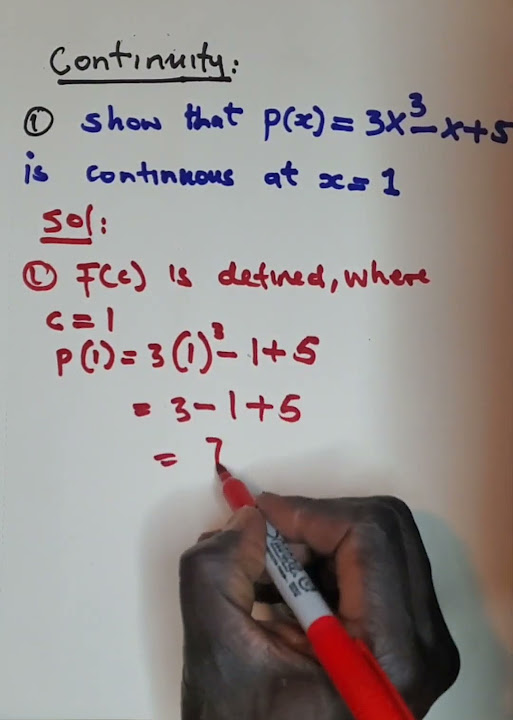 Continuity:
① show that p(x) = 3x³ - x + 5
is continuous at x = 1
Sol:
① F(c) is defined, where
c = 1
p(1) = 3(1)³ - 1 + 5
= 3 - 1 + 5
= 7